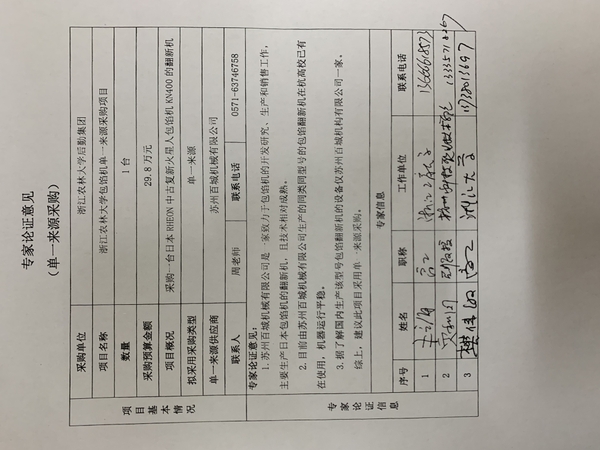 专家论证意见
（单一来源采购）
项目基本情况
采购单位 浙江农林大学后勤集团
项目名称 浙江农林大学包馅机单一来源采购项目
数量 1台
采购预算金额 29.8万元
项目概况 采购一台日本RHEON中古复新火星人包馅机KN400的翻新机
拟采用采购类型 单一来源
单一来源供应商 苏州百城机械有限公司
联系人 周老师 联系电话 0571-63746758
专家论证信息
专家论证意见：
1. 苏州百城机械有限公司是一家致力于包馅机的开发研究、生产和销售工作，
主要生产日本包馅机的翻新机，且技术相对成熟。
2. 目前由苏州百城机械有限公司生产的同类同型号的包馅翻新机在杭高校已有
在使用，机器运行平稳。
3. 据了解国内生产该型号包馅翻新机的设备仅苏州百城机构有限公司一家。
综上，建议此项目采用单一来源采购。
专家信息
序号 姓名 职称 工作单位 联系电话
1 高工
2
3 樊伟 高工 浙江大学